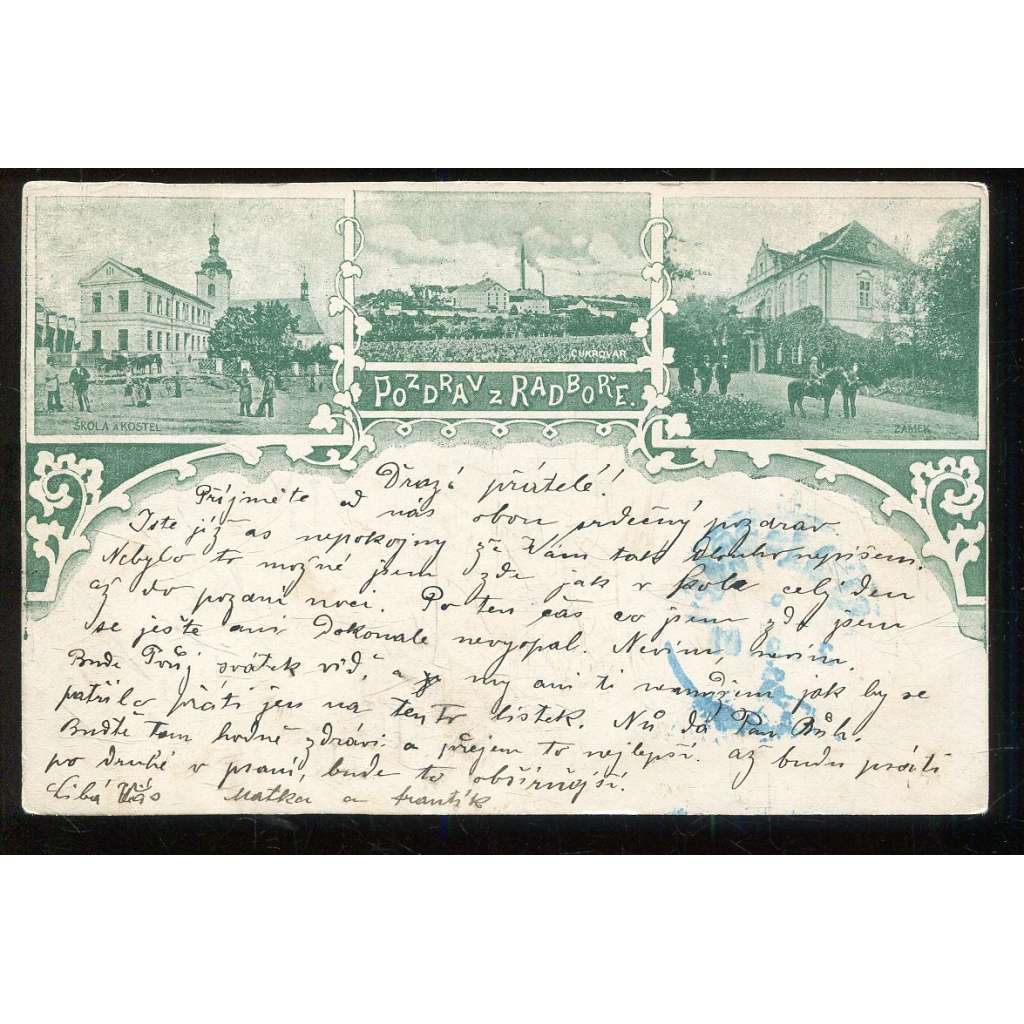 ŠKOLA A KOSTEL
CUKROVAR
ZÁMEK
POZDRAV Z RADBOŘE.
Drazí přátelé!
Příjměte od nás obou srdečný pozdrav
Iste již as nepokojny že Vám tak dlouho nepíšem.
Nebylo to možné jsem zde jak v kole celý den
až do pozdní noci. Po ten čas co jsem zde jsem
se ještě ani Dokonale nevyspal. Nevím, nevím.
Bude Tvůj svátek viď, a my ani ti nemůžem jak by se
patřilo přáti jen na tento lístek. Nů dá Pán Bůh.
Buďtě tam hodně zdrávi a přejem to nejlepší. až budu psáti
po druhé v psaní, bude to obšírnější.
Líbá Vás Matka a frantík